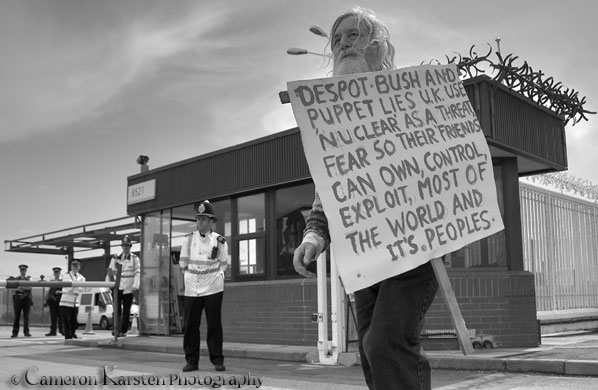 DESPOT BUSH AND
PUPPET LIES U.K. USE
'NUCLEAR AS A THREAT,
FEAR SO THEIR FRIENDS
CAN OWN, CONTROL,
EXPLOIT, MOST OF
THE WORLD AND
IT'S. PEOPLES.
B521
© Cameron Karsten Photography